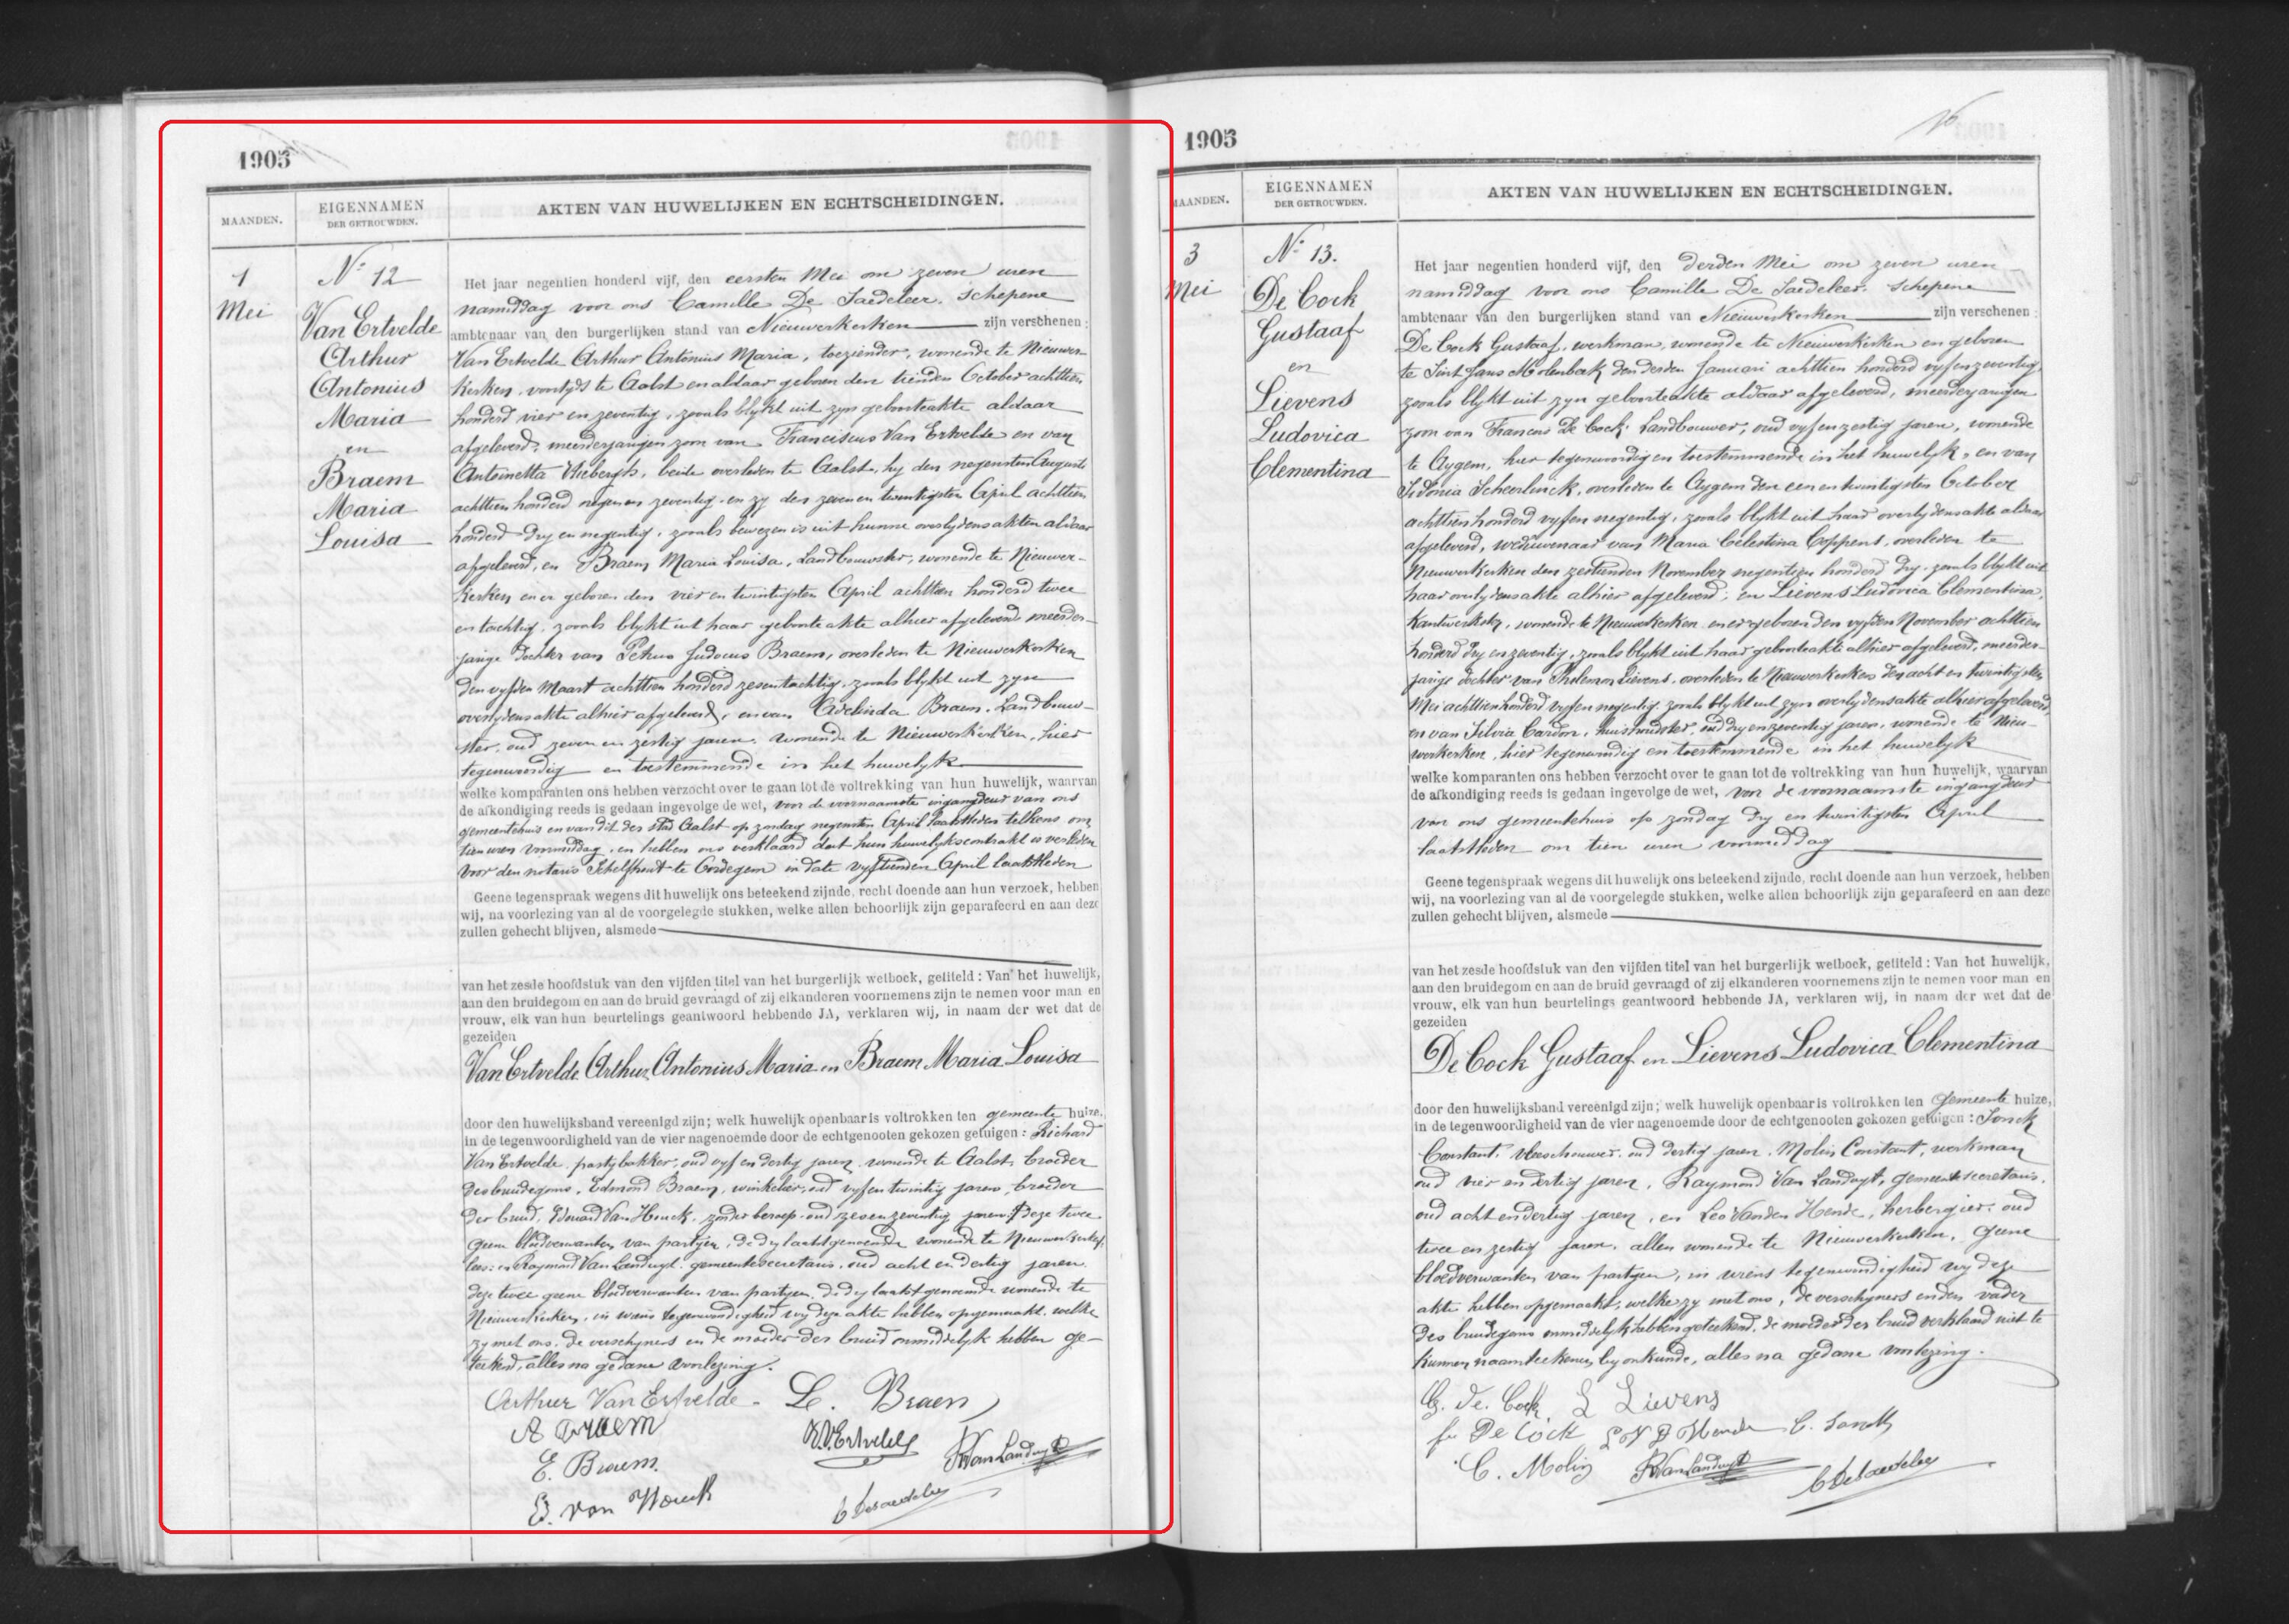 1905
MAANDEN.
EIGENNAMEN
DER GETROUWDEN.
AKTEN VAN HUWELIJKEN EN ECHTSCHEIDINGEN.
1
Mei
Nº 12
Van Ertvelde
Arthur
Antonius
Maria
en
Braem
Maria
Louisa
Het jaar negentien honderd vijf, den eersten Mei om zeven uren
namiddag voor ons Camille De Saedeleer, Schepene
ambtenaar van den burgerlijken stand van Nieuwerkerken zijn verschenen:
Van Ertvelde Arthur Antonius Maria, toeziender, wonende te Nieuwer-
kerken, voortijds te Aalst en aldaar geboren den tienden October achttien
honderd vier en zeventig, zooals blykt uit zyn geboorteakte aldaar
afgeleverd, meerderjarigen zoon van Franciscus Van Ertvelde en van
Antoinetta, beide overleden te Aalst, hy den negensten Augusti
achttien honderd negen en zeventig en zy den zeven en twintigsten April achttien
honderd dry en negentig, zooals bewezen is uit hunne overlydensakten aldaar
afgeleverd, en Braem Maria Louisa, Landbouwster, wonende te Nieuwer-
kerken en er geboren den vier en twintigsten April achttien honderd twee
en tachtig, zooals blykt uit haar geboorteakte alhier afgeleverd meerder-
jarige dochter van Petrus Judocus Braem, overleden te Nieuwerkerken
den vyfden Maart achttien honderd zesentachtig, zooals blykt uit zyne
overlydensakte alhier afgeleverd, en van Adelinda Braem, Landbouw-
ster, oud zeven en zestig jaren, wonende te Nieuwerkerken, hier
tegenwoordig en toestemmende in het huwelyk
welke komparanten ons hebben verzocht over te gaan tot de voltrekking van hun huwelijk, waarvan
de afkondiging reeds is gedaan ingevolge de wet, voor de voornaamste ingangdeur van ons
gemeentehuis en van dit der stad Aalst op zondag negensten April laatstleden telkens om
tien uren voormiddag, en hebben ons verklaard dat hun huwelykscontrakt is verleden
voor den notaris Schelfhout te Oordegem in date vyftienden April laatstleden
Geene tegenspraak wegens dit huwelijk ons beteekend zijnde, recht doende aan hun verzoek, hebben
wij, na voorlezing van al de voorgelegde stukken, welke allen behoorlijk zijn geparafeerd en aan deze
zullen gehecht blijven, alsmede
van het zesde hoofdstuk van den vijfden titel van het burgerlijk wetboek, getiteld : Van het huwelijk,
aan den bruidegom en aan de bruid gevraagd of zij elkanderen voornemens zijn te nemen voor man en
vrouw, elk van hun beurtelings geantwoord hebbende JA, verklaren wij, in naam der wet dat de
gezeiden
Van Ertvelde Arthur Antonius Maria en Braem Maria Louisa
door den huwelijksband vereenigd zijn; welk huwelijk openbaar is voltrokken ten gemeente huize,
in de tegenwoordigheid van de vier nagenoemde door de echtgenooten gekozen getuigen : Richard
Van Ertvelde, pastybakker, oud vyf en dertig jaren, wonende te Aalst, broeder
des bruidegoms, Edmond Braem, winkelier, oud vyf en twintig jaren, broeder
der bruid, Edouard Van Houck, zonder beroep, oud zes en zeventig jaren, deze twee
geene bloedverwanten van partyen, de dry laatstgenoemde wonende te Nieuwerkerken,
lees: en Raymond Van Landuyt, gemeentesecretaris, oud acht en dertig jaren
deze twee geene bloedverwanten van partyen, de dry laatstgenoemde wonende te
Nieuwerkerken, in wiens tegenwoordigheid wy deze akte hebben opgemaakt, welke
zy met ons, de verschyners en de moeder der bruid onmiddelyk hebben ge-
teekend, alles na gedane voorlezing.
Arthur Van Ertvelde - L. Braem
A Braem
R.V.Ertvelde
RVanLanduyt
E. Braem.
E. van Houck
C DeSaedeleer
1905
MAANDEN.
EIGENNAMEN
DER GETROUWDEN.
AKTEN VAN HUWELIJKEN EN ECHTSCHEIDINGEN.
3
Mei
Nº 13.
De Cock
Gustaaf
en
Lievens
Ludovica
Clementina
Het jaar negentien honderd vijf, den derden Mei om zeven uren
namiddag voor ons Camille De Saedeleer, Schepene
ambtenaar van den burgerlijken stand van Nieuwerkerken zijn verschenen :
De Cock Gustaaf, werkman, wonende te Nieuwerkerken en geboren
te Sint Jans Molenbeek den derden Januari achttien honderd vyfenzeventig,
zooals blykt uit zyn geboorteakte aldaar afgeleverd, meerderjarigen
zoon van Francies De Cock, Landbouwer, oud vyfenzestig jaren, wonende
te Aygem, hier tegenwoordig en toestemmende in het huwelyk, en van
Sidonia Scheerlinck, overleden te Aygem den een en twintigsten October
achttien honderd vyfen negentig, zooals blykt uit haar overlydensakte aldaar
afgeleverd, weduwenaar van Maria Celestina Coppens, overleden te
Nieuwerkerken den zestienden November negentien honderd dry, zooals blykt uit
haar overlydensakte alhier afgeleverd; en Lievens Ludovica Clementina,
Kantwerkster, wonende te Nieuwerkerken en er geboren den vyfden November achttien
honderd dry en zeventig, zooals blykt uit haar geboorteakte alhier afgeleverd, meerder-
jarige dochter van Philemon Lievens, overleden te Nieuwerkerken den acht en twintigsten
Mei achttien honderd vyfen negentig, zooals blykt uit zyn overlydensakte alhier afgeleverd,
en van Silvia Cardon, huishoudster, oud dry en zeventig jaren, wonende te Nieu-
werkerken, hier tegenwoordig en toestemmende in het huwelyk
welke komparanten ons hebben verzocht over te gaan tot de voltrekking van hun huwelijk, waarvan
de afkondiging reeds is gedaan ingevolge de wet, voor de voornaamste ingangdeur
van ons gemeentehuis op zondag dry en twintigsten April
laatstleden om tien uren voormiddag
Geene tegenspraak wegens dit huwelijk ons beteekend zijnde, recht doende aan hun verzoek, hebben
wij, na voorlezing van al de voorgelegde stukken, welke allen behoorlijk zijn geparafeerd en aan deze
zullen gehecht blijven, alsmede
van het zesde hoofdstuk van den vijfden titel van het burgerlijk wetboek, getiteld : Van het huwelijk,
aan den bruidegom en aan de bruid gevraagd of zij elkanderen voornemens zijn te nemen voor man en
vrouw, elk van hun beurtelings geantwoord hebbende JA, verklaren wij, in naam der wet dat de
gezeiden
De Cock Gustaaf en Lievens Ludovica Clementina
door den huwelijksband vereenigd zijn; welk huwelijk openbaar is voltrokken ten Gemeente huize,
in de tegenwoordigheid van de vier nagenoemde door de echtgenooten gekozen getuigen : Sonck
Constant, vleeschouwer, oud dertig jaren, Molin Constant, werkman
oud vier en dertig jaren, Raymond Van Landuyt, gemeentesecretaris,
oud acht en dertig jaren, en Leo Vanden Hende, herbergier, oud
twee en zestig jaren, allen wonende te Nieuwerkerken, geene
bloedverwanten van partyen, in wiens tegenwoordigheid wy deze
akte hebben opgemaakt, welke zy met ons, de verschyners en den vader
des bruidegoms onmiddelyk hebben geteekend, de moeder der bruid verklaard niet te
kunnen naamteekenen by onkunde, alles na gedane voorlezing.
G. de. Cock L Lievens
fr De Cock L V D Hende C. Sonck
C. Molin RVanLanduyt C DeSaedeleer